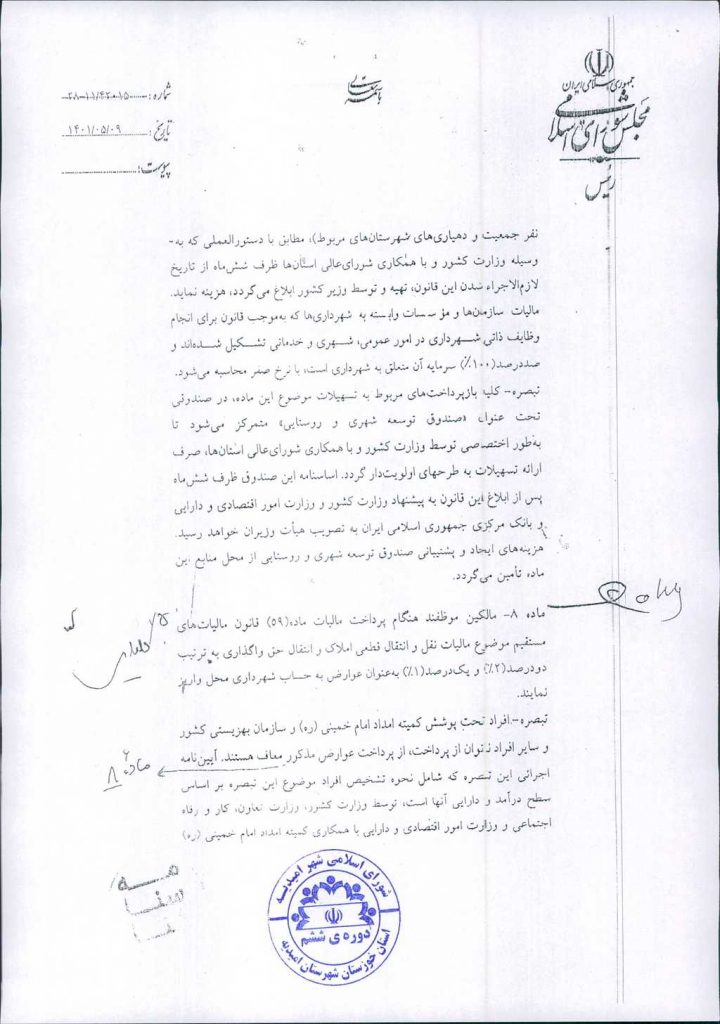 جمهوری اسلامی ایران
مجلس شورای اسلامی
رئیس
باسمه تعالی
شماره: ۲۸۰۱۱/۴۲۰۱۵
تاریخ: ۱۴۰۱/۰۵/۰۹
پیوست:
نفر جمعیت و دهیاری‌های شهرستان‌های مربوط)، مطابق با دستورالعملی که به-
وسیله وزارت کشور و با همکاری شورای‌عالی استان‌ها ظرف شش‌ماه از تاریخ
لازم‌الاجراء شدن این قانون، تهیه و توسط وزیر کشور ابلاغ می‌گردد، هزینه نماید.
مالیات سازمان‌ها و مؤسسات وابسته به شهرداری‌ها که به‌موجب قانون برای انجام
وظایف ذاتی شهرداری در امور عمومی، شهری و خدماتی تشکیل شده‌اند و
صددرصد(۱۰۰٪) سرمایه آن متعلق به شهرداری است، با نرخ صفر محاسبه می‌شود.
تبصره- کلیه بازپرداخت‌های مربوط به تسهیلات موضوع این ماده، در صندوقی
تحت عنوان «صندوق توسعه شهری و روستایی» متمرکز می‌شود تا
به‌طور اختصاصی توسط وزارت کشور و با همکاری شورای‌عالی استان‌ها، صرف
ارائه تسهیلات به طرحهای اولویت‌دار گردد. اساسنامه این صندوق ظرف شش‌ماه
پس از ابلاغ این قانون به پیشنهاد وزارت کشور و وزارت امور اقتصادی و دارایی
و بانک مرکزی جمهوری اسلامی ایران به تصویب هیأت وزیران خواهد رسید.
هزینه‌های ایجاد و پشتیبانی صندوق توسعه شهری و روستایی از محل منابع این
ماده تأمین می‌گردد.
ماده ۸- مالکین موظفند هنگام پرداخت مالیات ماده(۵۹) قانون مالیات‌های
مستقیم موضوع مالیات نقل و انتقال قطعی املاک و انتقال حق واگذاری به ترتیب
دودرصد(۲٪) و یک‌درصد(۱٪) به‌عنوان عوارض به حساب شهرداری محل واریز
نمایند.
تبصره- افراد تحت پوشش کمیته امداد امام خمینی (ره) و سازمان بهزیستی کشور
و سایر افراد ناتوان از پرداخت، از پرداخت عوارض مذکور معاف هستند. آیین‌نامه
ماده ۸
اجرائی این تبصره که شامل نحوه تشخیص افراد موضوع این تبصره بر اساس
سطح درآمد و دارایی آنها است، توسط وزارت کشور، وزارت تعاون، کار و رفاه
اجتماعی و وزارت امور اقتصادی و دارایی با همکاری کمیته امداد امام خمینی (ره)
شورای اسلامی شهر امیدیه
دوره‌ی ششم
استان خوزستان شهرستان امیدیه